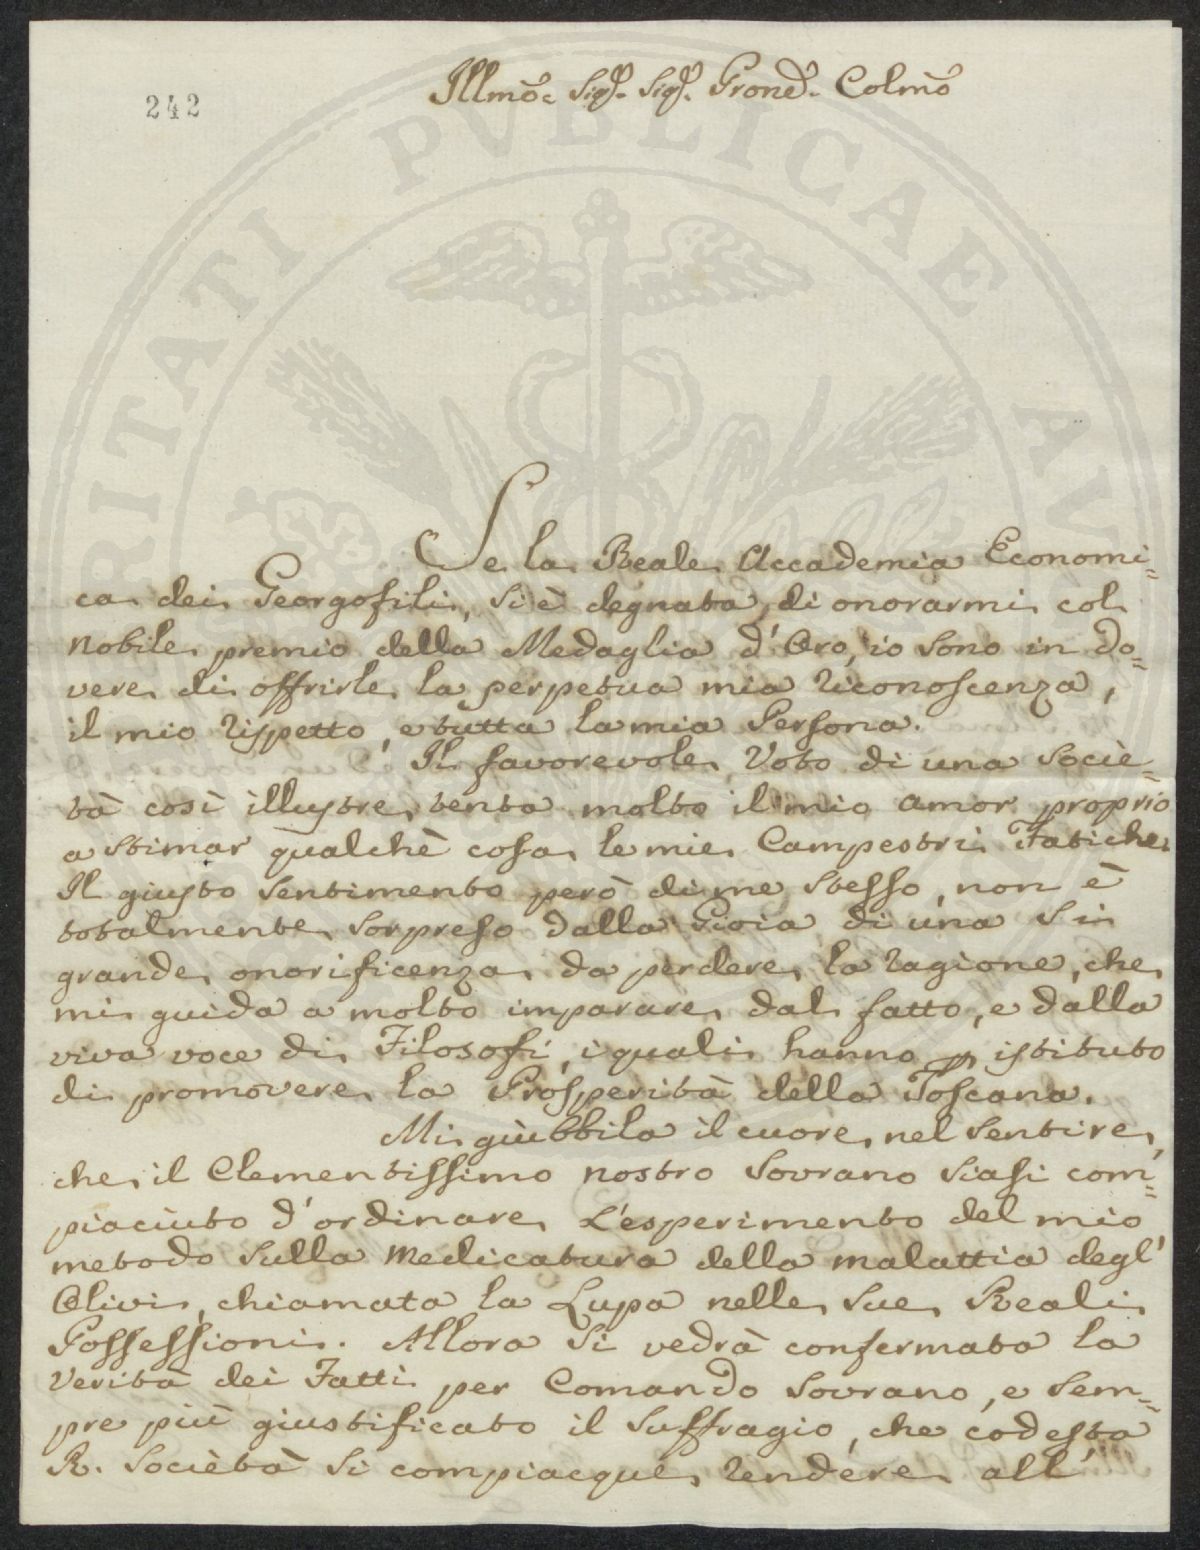 242
Illmo. Sigr. Sigr. Prone. Colmo
Se la Reale Accademia Economi=
ca dei Georgofili, si è degnata di onorarmi col
nobile premio della Medaglia d'Oro, io sono in do=
vere di offrirle la perpetua mia riconoscenza,
il mio rispetto, e tutta la mia Persona.
Il favorevole Voto di una Socie=
tà così illustre tenta molto il mio amor proprio
a stimar qualchè cosa le mie Campestri Fatiche
Il giusto sentimento però di me stesso, non è
totalmente sorpreso dalla Gioia di una sì
grande onorificenza da perdere la ragione, che
mi guida a molto imparare dal fatto, e dalla
viva voce di Filosofi, i quali hanno p istituto
di promovere la Prosperità della Toscana.
Mi giubbila il cuore nel sentire,
che il Clementissimo nostro Sovrano siasi com=
piaciuto d'ordinare L'esperimento del mio
metodo sulla medicatura della malattia degl'
Olivi, chiamata la Lupa nelle sue Reali
Possessioni. Allora si vedrà confermata la
Verità dei Fatti per Comando Sovrano, e sem=
pre più giustificato il suffragio, che codesta
R. Società si compiacque rendere all'
RITATI PVBLICAE AV